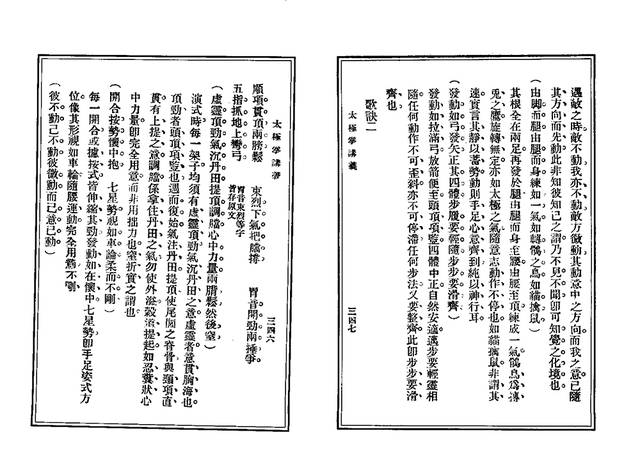 太極拳講義　三四六
順項貫頂兩膀鬆　束烈下氣把襠撐　胃音開勁兩捶爭
五指抓地上彎弓　胃音束烈等字皆存原文
（虛靈頂勁氣沉丹田提頂調襠心中力量兩膀鬆然後窒）
演式時每一架子均須有虛靈頂勁氣沉丹田之意虛靈者意貫胸海也
頂勁者頭頂項豎也週而復始氣注丹田提頂使尾閭之脊骨與頸項直
貫有上提之意調襠係拿住丹田之氣勿使外溢穀道提起如忍糞狀心
中力量卽完全用意而非用拙力也窒折實之謂也
（開合按勢懷中抱　七星勢視如車輪柔而不剛）
每一開合或擄按式皆伸縮其勁發動如在懷中七星勢卽手足姿式方
位像其形視如車輪隨腰運動完全用鬆不剛
（彼不動己不動彼微動而己意已動）
遇敵之時敵不動我亦不動敵方微動其動意中之方向而我之意已隨
其方向而先動此非知彼知己之謂乃不見不聞卽可知覺之化境也
（由脚而腿由腿而身練如一氣如轉鶻之鳥如貓擒鼠）
其根全在兩足再發於腿由腿而身至腰由腰至頂練成一氣鶻鳥為搏
兔之鷹旋轉無定亦如太極之氣隨意志動作不停也如貓擒鼠非謂其
速實言其靜以蓄勢動則手足心意齊到純以神行耳
（發動如弓發矢正其四體步履要輕隨步步要滑齊）
發動如拉滿弓放箭便至頭頂項豎四體中正自然安適邁步要輕靈相
隨任何動作不可歪斜亦不可停滯任何步法又要整齊此卽步步要滑
齊也
歌訣二
太極拳講義　三四七